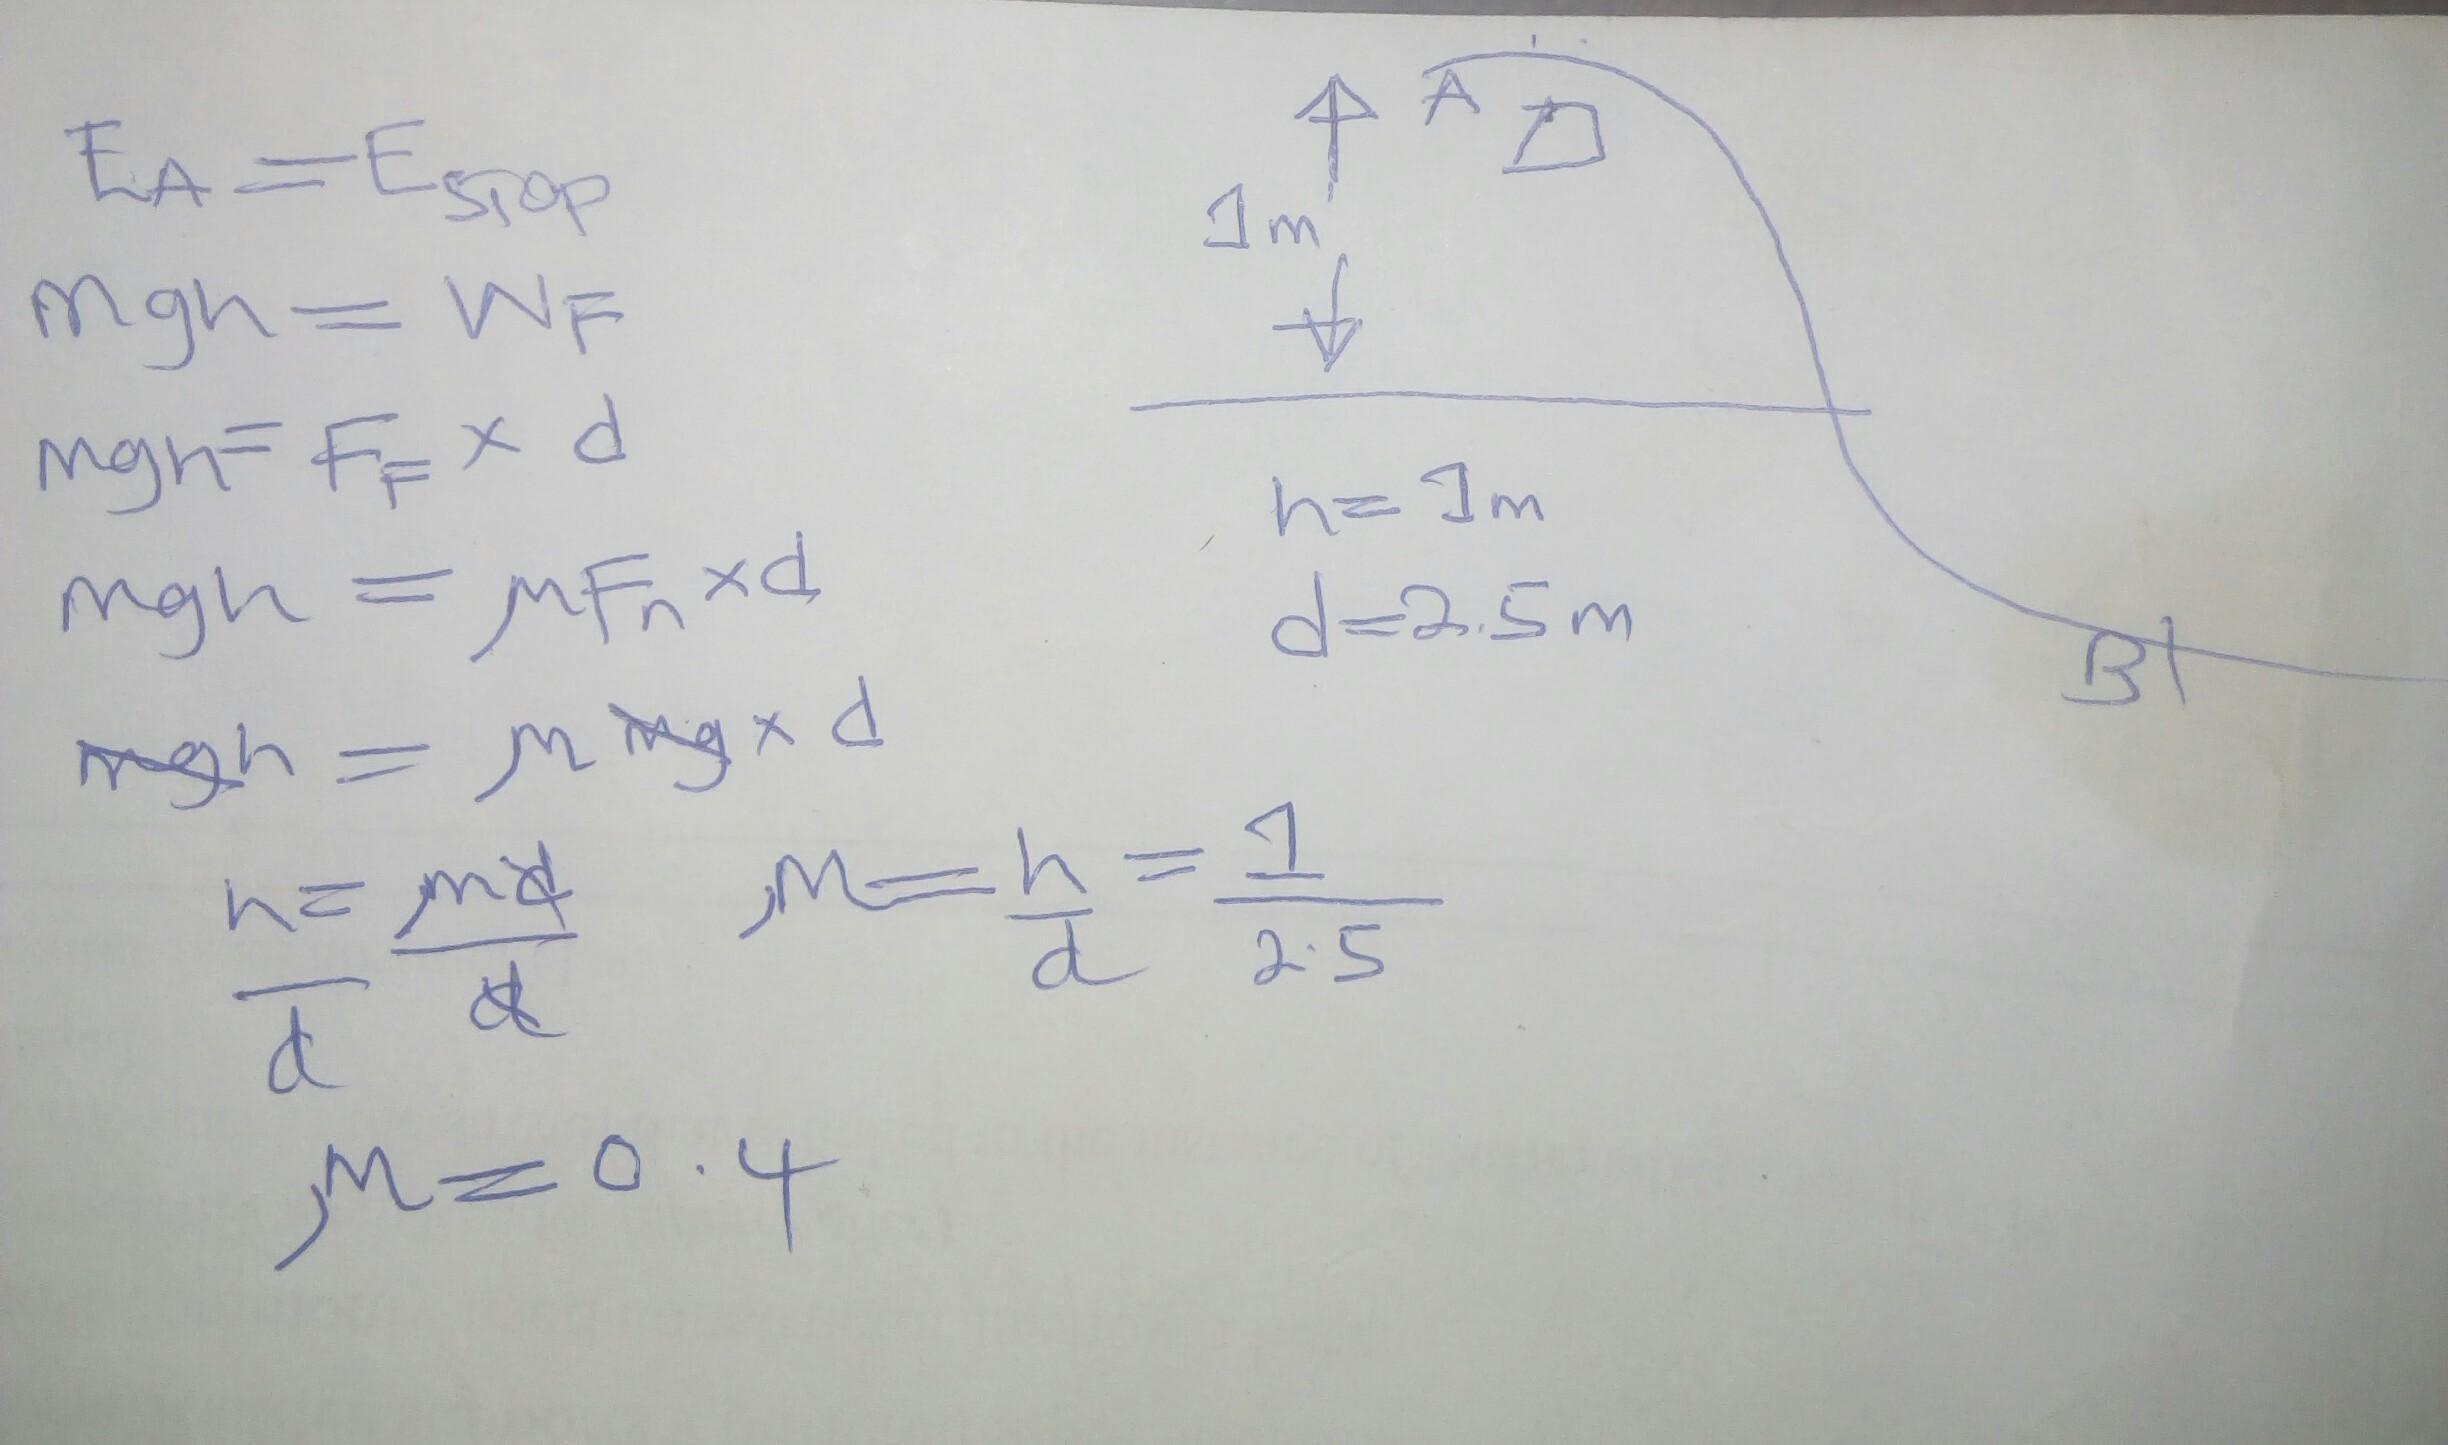 EA = ESTOP
mgh = WF
mgh = FF × d
mgh = μFn × d
mgh = μ mg × d
h/d = μd/d
μ = h/d = 1/2.5
μ = 0.4
A
1m
h = 1m
d = 2.5m
B